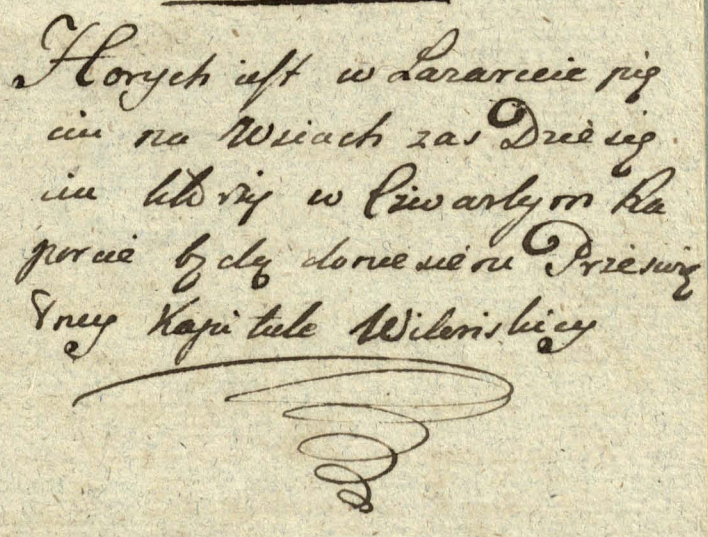 Horych iest w Lazarecie pię
ciu na Wsiach zas Dziesię
ciu którzy w Czwartym Ra
porcie będą doniesieni Prześwię
tney Kapitule Wilenskiey